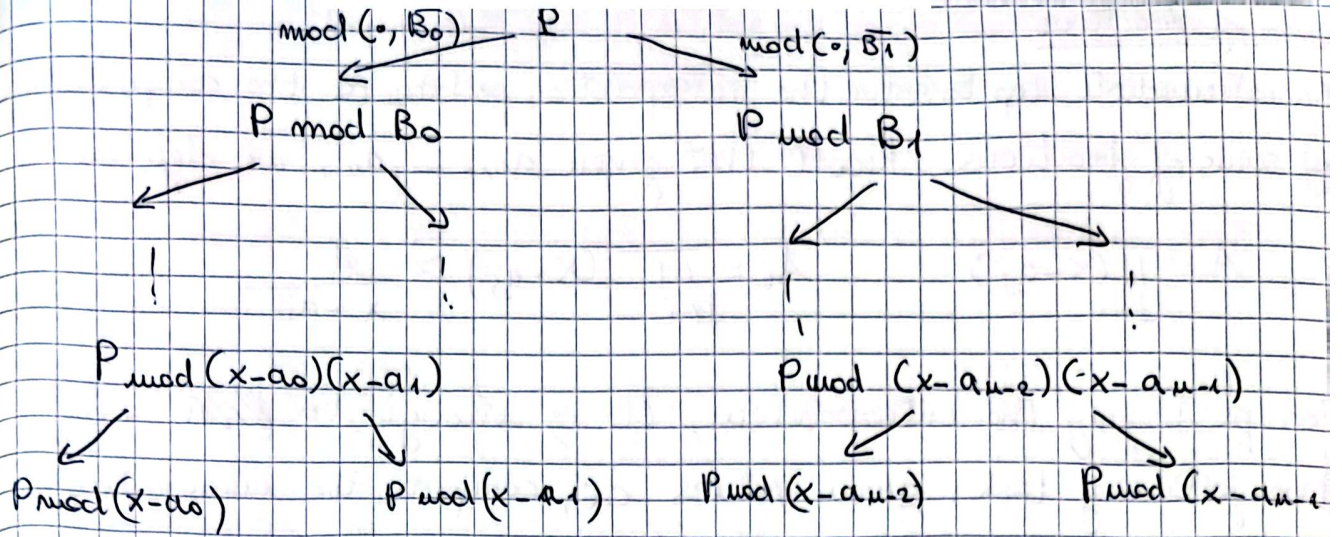 mod (•, B̅0) P mod (•, B̅1)
P mod B0 P mod B1
P mod (x-a0)(x-a1) P mod (x-an-2)(x-an-1)
P mod (x-a0) P mod (x-a1) P mod (x-an-2) P mod (x-an-1